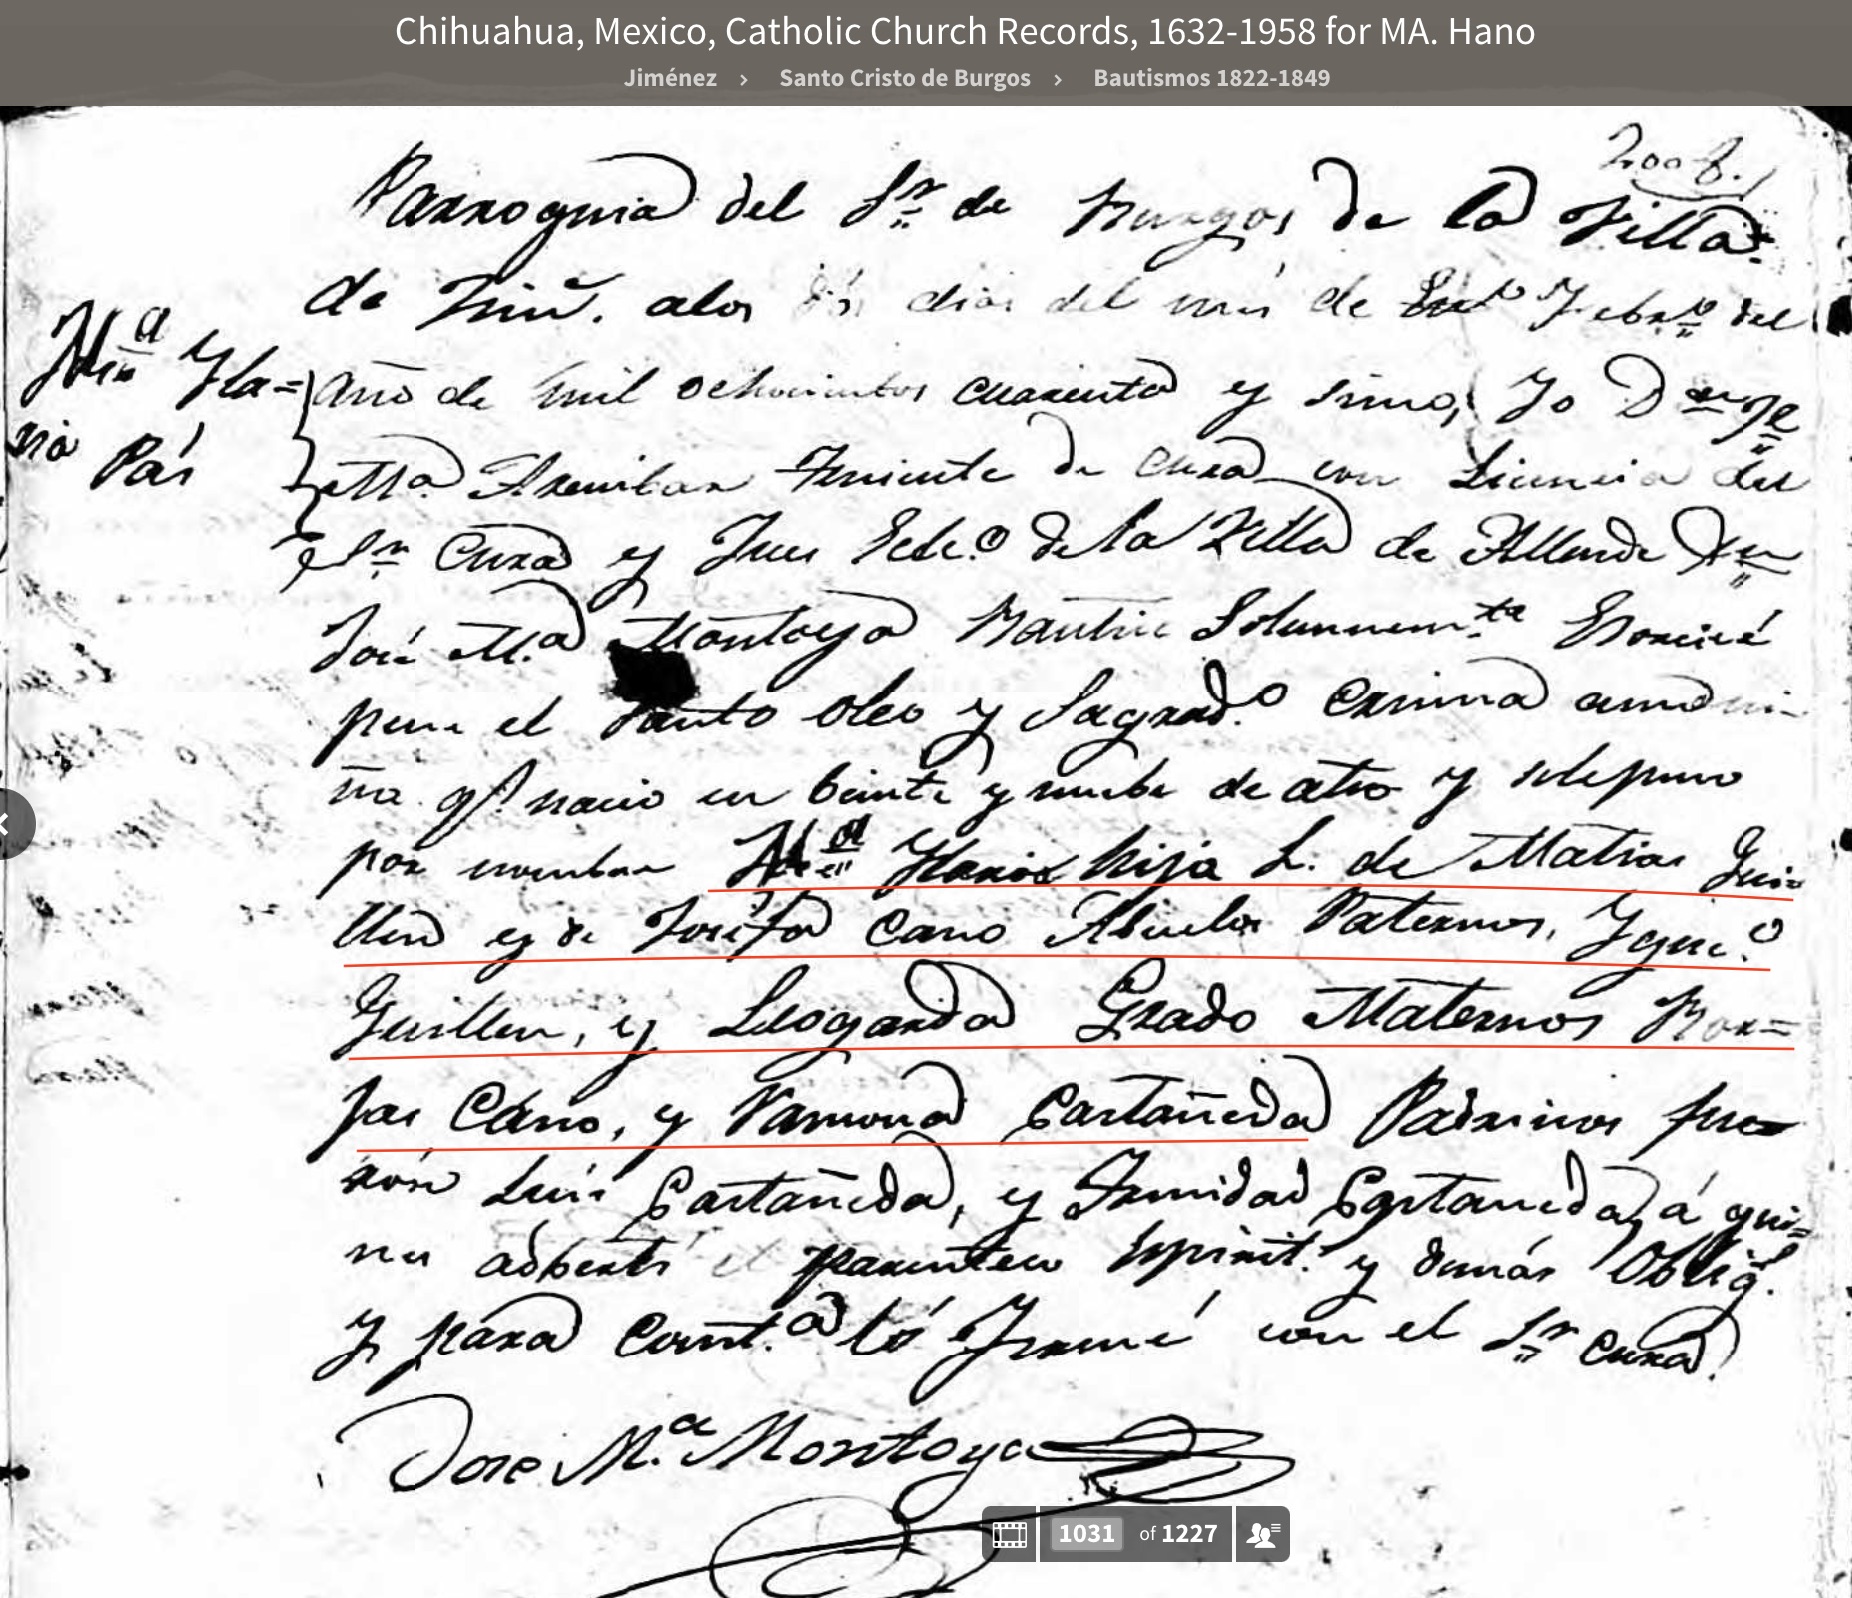 Chihuahua, Mexico, Catholic Church Records, 1632-1958 for MA. Hano
Jiménez › Santo Cristo de Burgos › Bautismos 1822-1849
Parroquia del Sr de Burgos de la Villa
de Jimz. a los dias del mes de Febro del
Ma Yla=
año de mil ochocientos cuarenta y sinco, Yo Dn Je
ria Pás
Ma Teniente de Cura con Licencia del
Sr Cura y Jues Ecleo de la Villa de Allende Dn
José M.a Montoya Bautise Solennemte Exorcisé
puse el Santo Oleo y Sagrado Crisma a una
ña q. nacio en beinte y nuebe de otro y sele puso
por nombre Ma Ylaria hija L. de Matias Gui=
llen y de Josefa Cano Abuelos Paternos, Ygnc.o
Guillen, y Leogarda Grado Maternos Bor=
jas Cano, y Ramona Castañeda Padrinos fue=
rón Luis Castañeda, y Trinidad Castañeda, á quie=
nes adberti el parentesco Spirit. y demás Oblig.s
Y para Const.a ló Firmé con el Sr Cura.
Jose M.a Montoya
1031 of 1227